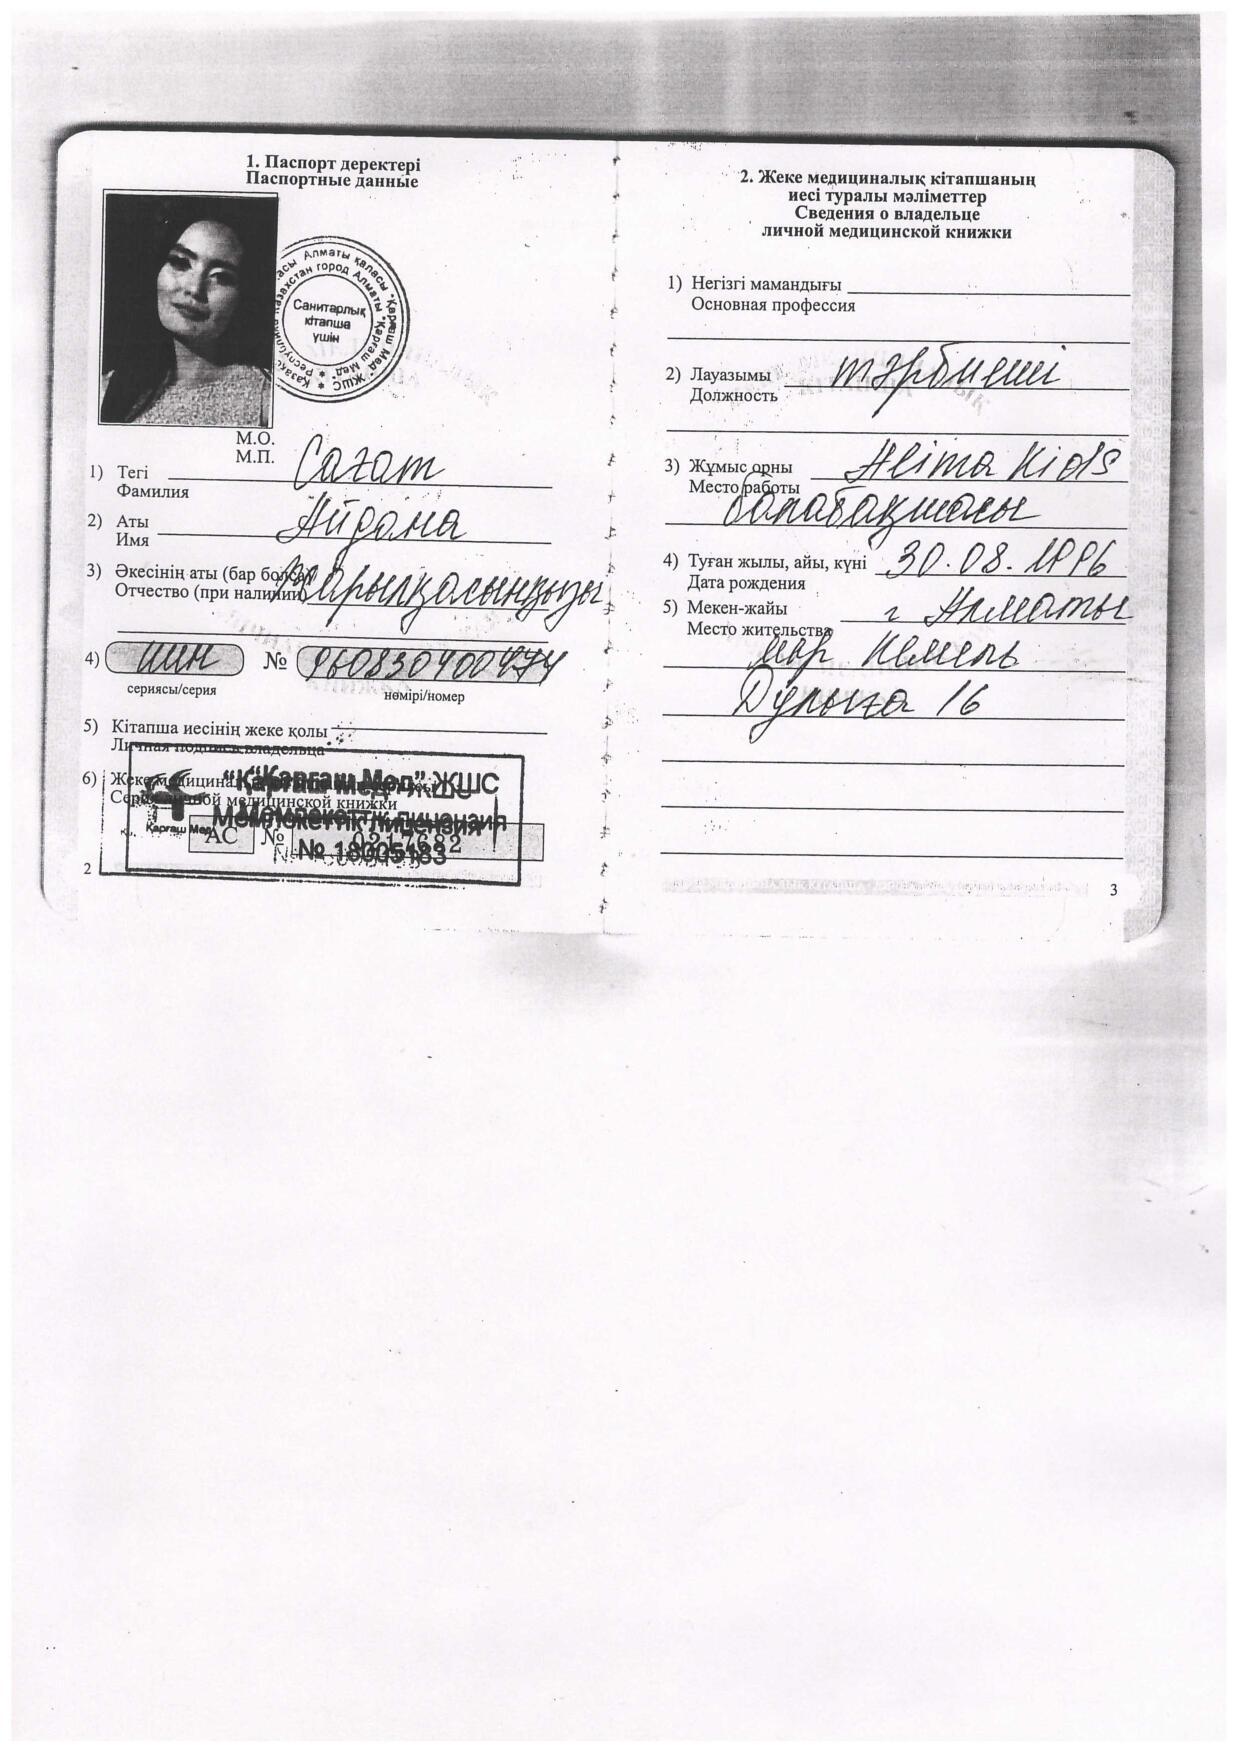 1. Паспорт деректері
Паспортные данные
Санитарлық
кітапша
үшін
М.О.
М.П.
1) Тегі Сағат
Фамилия
2) Аты Айдана
Имя
3) Әкесінің аты (бар болса) Жарылқасынқызы
Отчество (при наличии)
4) ИИН № 960830400474
сериясы/серия нөмірі/номер
5) Кітапша иесінің жеке қолы
Личная подпись владельца
6) Жеке медицина
Серия личной медицинской книжки
"Қарғаш Мед" ЖШС
Мемлекеттік лицензия
№ 18005183
Қарғаш Мед
АС № 0217682
2
2. Жеке медициналық кітапшаның
иесі туралы мәліметтер
Сведения о владельце
личной медицинской книжки
1) Негізгі мамандығы
Основная профессия
2) Лауазымы тәрбиеші
Должность
3) Жұмыс орны Alima Kids
Место работы балабақшасы
4) Туған жылы, айы, күні 30.08.1996
Дата рождения
5) Мекен-жайы г Алматы
Место жительства
мкр
Дулыға 16
3